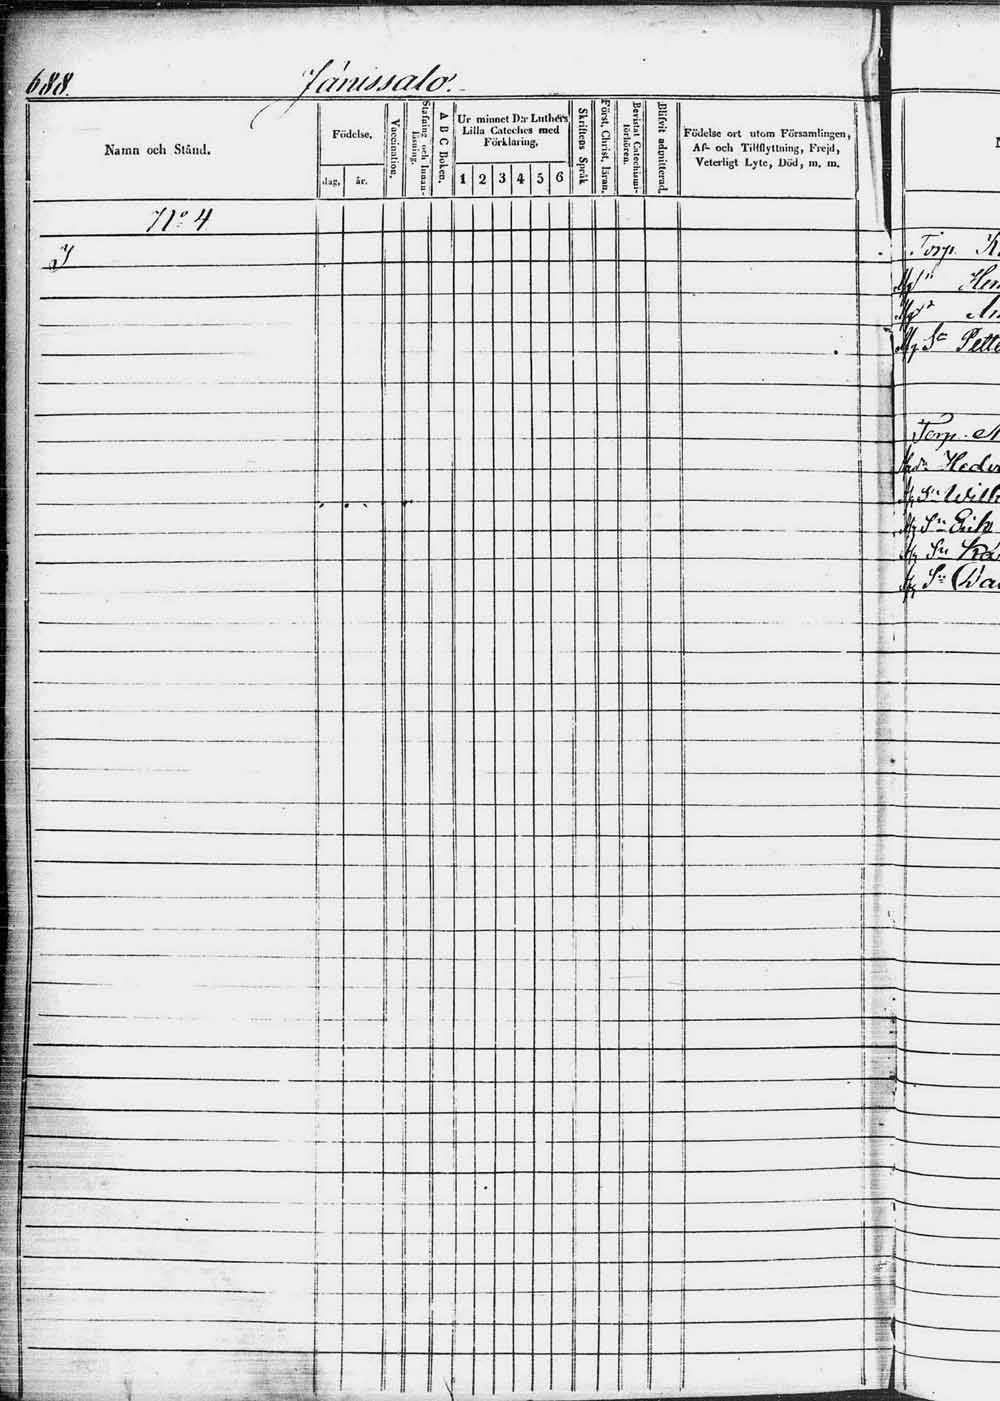 688. Jänissalo.
Namn och Stånd.
Födelse,
dag, år.
Vaccination.
Stafning och Innanläsning.
A B C Boken.
Ur minnet D:r Luthers Lilla Cateches med Förklaring,
1 2 3 4 5 6
Skriftens Språk
Först. Christ. läran.
Bevistat Catechismiförhören.
Blifvit admitterad.
Födelse ort utom Församlingen,
Af- och Tillflyttning, Frejd,
Veterligt Lyte, Död, m. m.
N:o 4
Torp.
Torp.
Hedv
Sn Wilh
Sn Erik
Sn
Sn